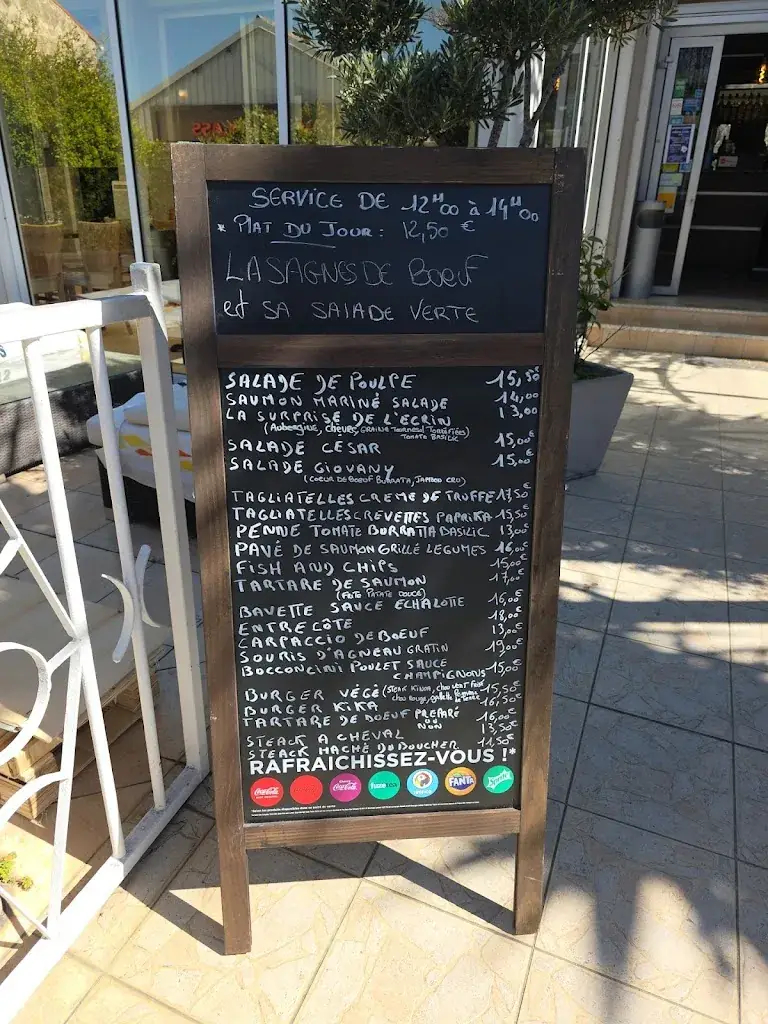 SERVICE DE 12H00 à 14H00
* PLAT DU JOUR : 12,50 €
LASAGNES DE BOEUF
et SA SALADE VERTE
SALADE DE POULPE 15,50€
SAUMON MARINÉ SALADE 14,00
LA SURPRISE DE L'ECRIN 13,00
(Aubergine, CHEVRE, GRAINE TOURNESOL TORRÉFIÉES
TOMATE BASILIC
SALADE CESAR 15,00€
SALADE GIOVANY 15,00
(COEUR DE BOEUF BURRATA, JAMBON CRU)
TAGLIATELLES CREME DE TRUFFE 17,50€
TAGLIATELLES CREVETTES PAPRIKA 15,50€
PENNE TOMATE BURRATTA BASILIC 13,00€
PAVÉ DE SAUMON GRILLÉ LEGUMES 16,00€
FISH AND CHIPS 15,00€
TARTARE DE SAUMON 17,00€
(FRITE PATATE DOUCE)
BAVETTE SAUCE ECHALOTTE 16,00€
ENTRECÔTE 18,00€
CARPACCIO DE BOEUF 13,00€
SOURIS D'AGNEAU GRATIN 19,00€
BOCCONCINI POULET SAUCE 15,00€
CHAMPIGNONS
BURGER VÉGÉ (STEAK KINOA, CHOU VERT FRISÉ 15,50€
CHOU ROUGE, GALETTE POMMES DE TERRE
BURGER KIKA 16,50€
TARTARE DE BOEUF PREPARÉ 16,00€
OU
NON
STEACK A CHEVAL 13,50€
STEACK HACHÉ DU BOUCHER 11,50€
RAFRAICHISSEZ-VOUS !*
Coca-Cola Coca-Cola fuzetea FANTA Sprite